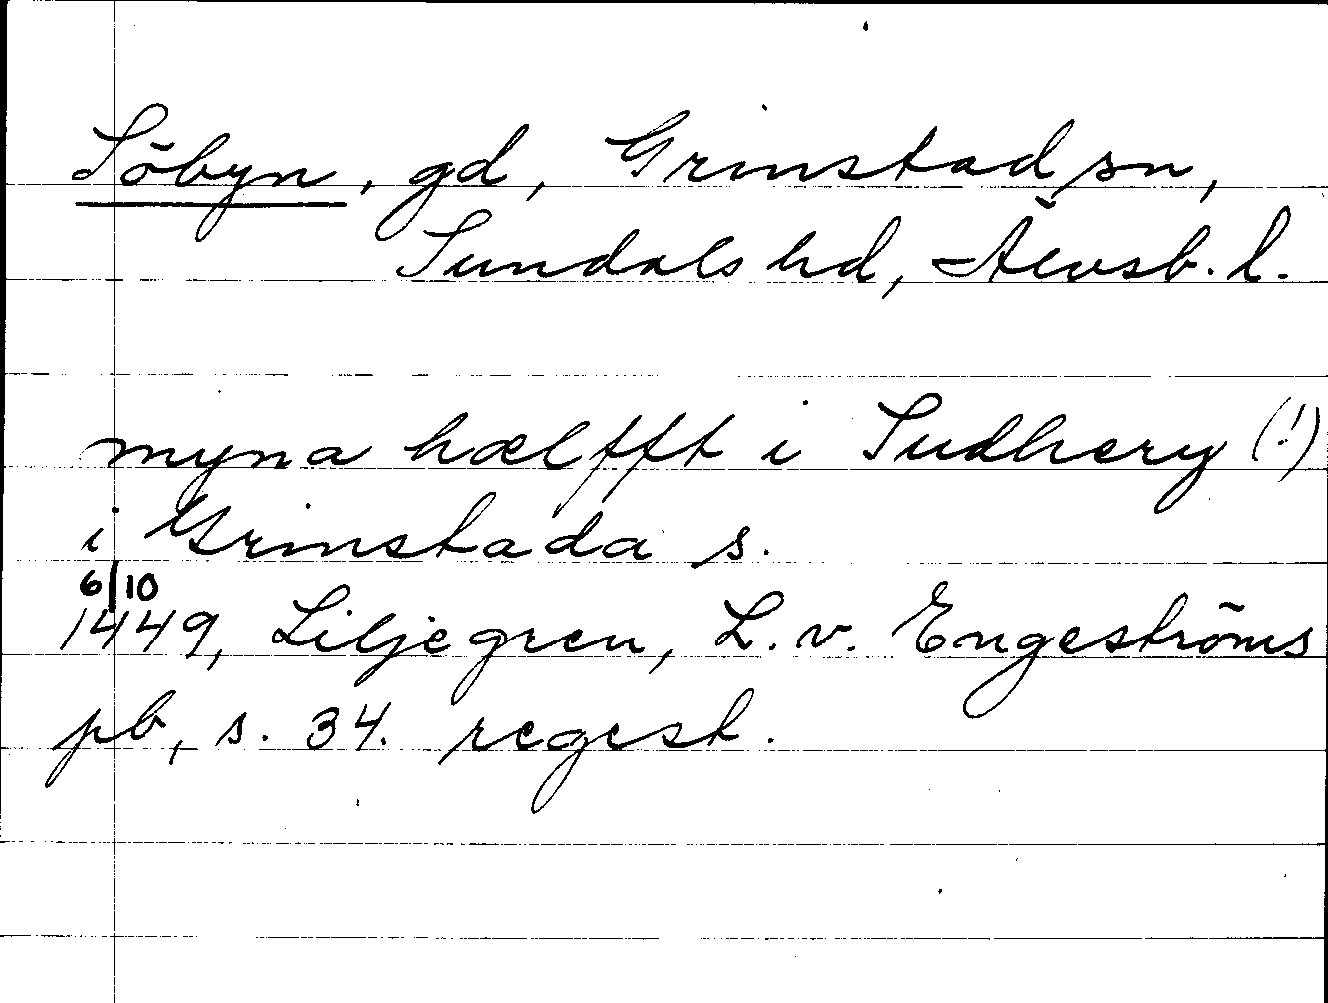 Söbyn, gd, Grinstad sn,
Sundals hd, Älvsb. l.
myna hælfft i Sudhery (!)
i Grinstada s.
6/10
1449, Liljegren, L. v. Engeströms
pb, s. 34. regest.